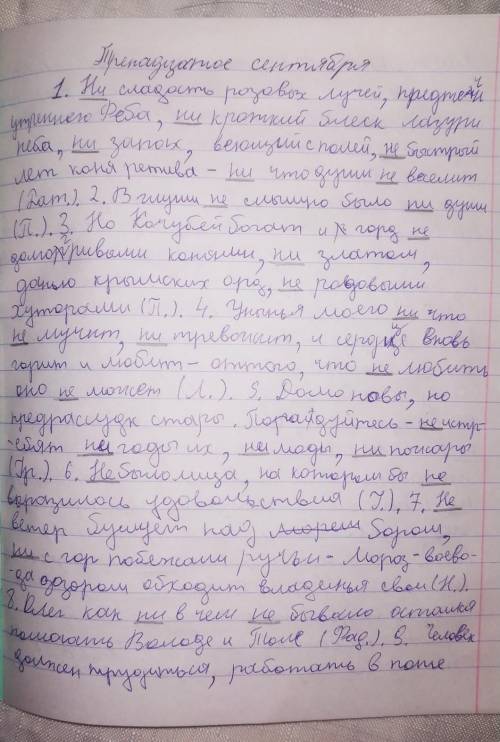 Тринадцатое сентября
1. Ни сладость розовых лучей, предтечй
утреннего Феба, ни кроткий блеск лазури
неба, ни запах, веющий с полей, не быстрый
лет коня ретива – ни что души не веселит
(Бат.). 2. В глуши не слышно было ни души
(П.). 3. Но Кочубей богат и горд не
долгогривыми конями, ни златом,
данью крымских орд, не родовыми
хуторами (П.). 4. Унынья моего ни что
не мучит, ни тревожит, и сердце вновь
горит и любит – оттого, что не любить
оно не может (Л.). 5. Дома новы, но
предрассудк стары. Порадуйтесь – не истр-
-ебят ни годы их, ни моды, ни пожары
(Гр.). 6. Не было лица, на котором бы не
выразилось удовольствия (Г.). 7. Не
ветер бушует над бором,
ни с гор побежали ручьи – Мороз-воево-
-да дозором обходит владенья свои (Н.).
8. Олег как ни в чем не бывало остался
помогать Володе и Толе (Фад.). 9. Человек
должен трудиться, работать в поте